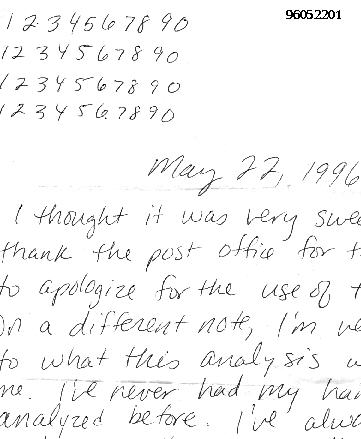 96052201
1 2 3 4 5 6 7 8 9 0
1 2 3 4 5 6 7 8 9 0
1 2 3 4 5 6 7 8 9 0
1 2 3 4 5 6 7 8 9 0
May 22, 1996
I thought it was very swee
thank the post office for t
to apologize for the use of t
On a different note, I'm ve
to what this analysis w
me. I've never had my han
analyzed before. I've alwa